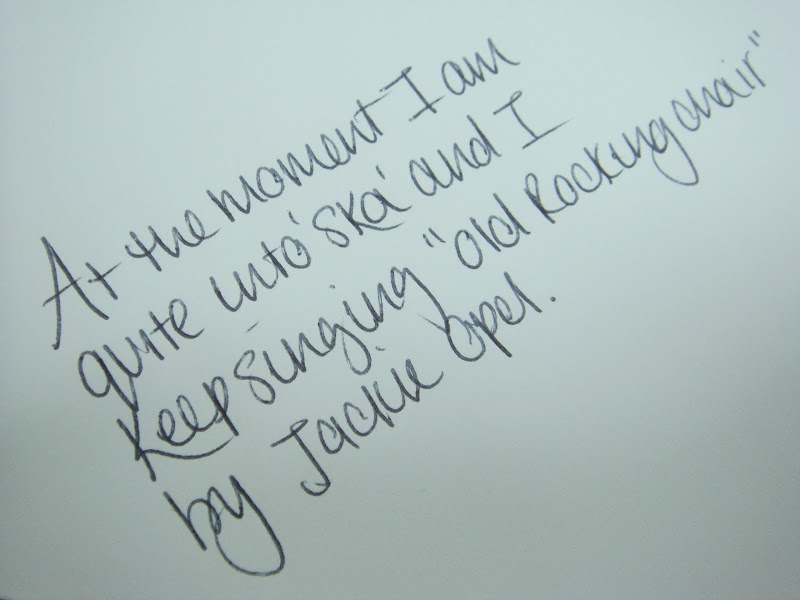 At the moment I am
quite into 'ska' and I
keep singing "old Rocking chair"
by Jackie Opel.